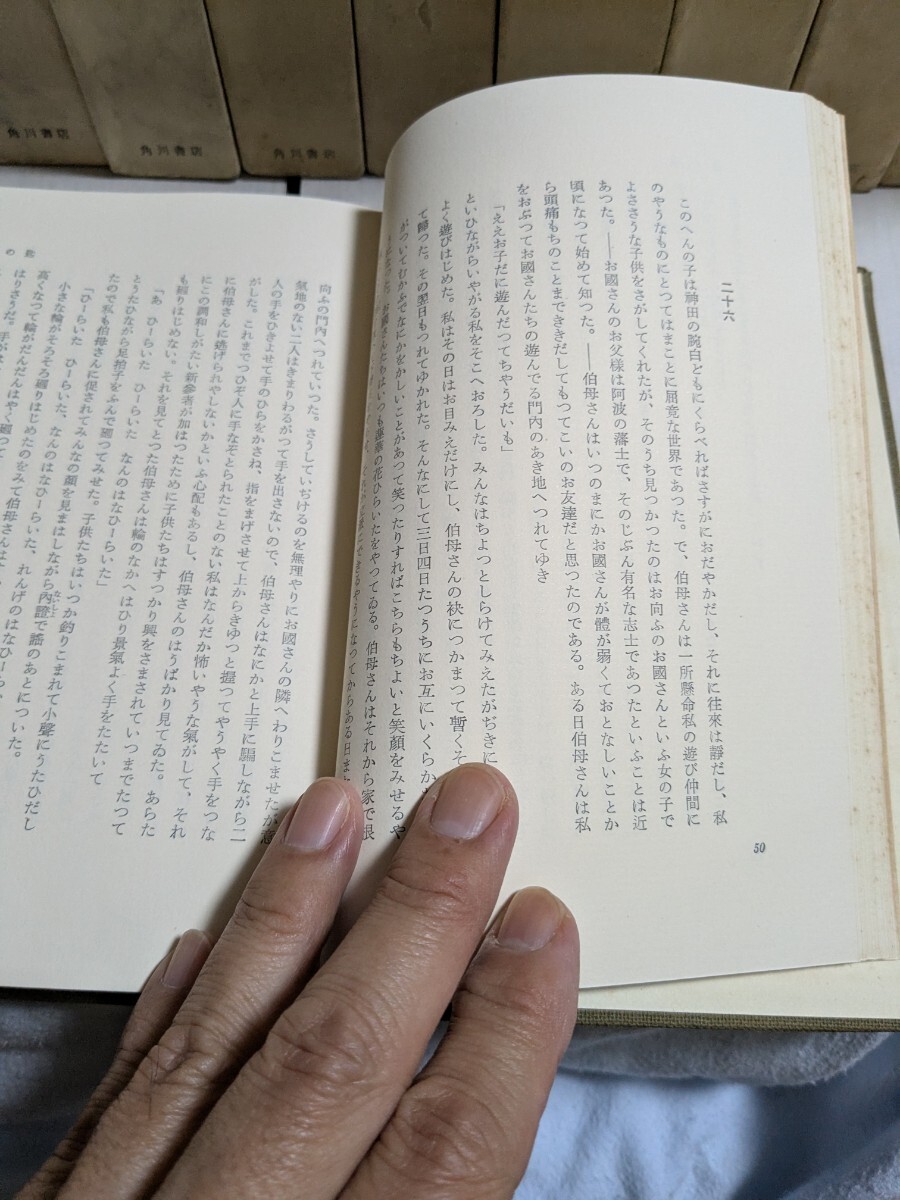 角川書店
角川書店
角川書店
二十六
このへんの子は神田の腕白どもにくらべればさすがにおだやかだし、それに往來は靜だし、私
のやうなものにとつてはまことに屈竟な世界であつた。で、伯母さんは一所懸命私の遊び仲間に
よささうな子供をさがしてくれたが、そのうち見つかつたのはお向ふのお國さんといふ女の子で
あつた。――お國さんのお父樣は阿波の藩士で、そのじぶん有名な志士であつたといふことは近
頃になつて始めて知つた。――伯母さんはいつのまにかお國さんが體が弱くておとなしいことか
ら頭痛もちのことまでききだしてもつてこいのお友達だと思つたのである。ある日伯母さんは私
をおぶつてお國さんたちの遊んでる門內のあき地へつれてゆき
「ええお子だに遊んだつてちやうだいも」
といひながらいやがる私をそこへおろした。みんなはちよつとしらけてみえたがぢきに
よく遊びはじめた。私はその日はお目みえだけにし、伯母さんの袂につかまつて暫くそ
て歸つた。その翌日もつれてゆかれた。そんなにして三日四日たつうちにお互にいくらか
がついてむかふでなにかをかしいことがあつて笑つたりすればこちらもちよいと笑顏をみせるや
はいつも蓮華の花ひらいたをやつてゐる。伯母さんはそれから家で根
できるやうになつてからある日また
50
向ふの門內へつれていつた。さうしていぢけるのを無理やりにお國さんの隣へわりこませたが意
氣地のない二人はきまりわるがつて手を出さないので、伯母さんはなにかと上手に騙しながら二
人の手をひきよせて手のひらをかさね、指をまげさせて上からきゆつと握つてやうやく手をつな
がした。これまでつひぞ人に手なぞとられたことのない私はなんだか怖いやうな氣がして、それ
に伯母さんに逃げられやしないかといふ心配もあるし、伯母さんのはうばかり見てゐた。あらた
にこの調和しがたい新參者が加はつたために子供たちはすつかり興をさまされていつまでたつて
も𢌞りはじめない。それを見てとつた伯母さんは輪のなかへはひり景氣よく手をたたいて
「あ ひーらいた ひーらいた なんのはなひーらいた」
とうたひながら足拍子をふんで𢌞つてみせた。子供たちはいつか釣りこまれて小聲にうたひだし
たので私も伯母さんに促されてみんなの顏を見まはしながら內證で謠のあとについた。
「ひーらいた ひーらいた、なんのはなひーらいた、れんげのはなひーらい
小さな輪がそろそろ𢌞りはじめたのをみて伯母さんは
高くなつて輪がだんだんはやく𢌞つて
はりさうだ。手が